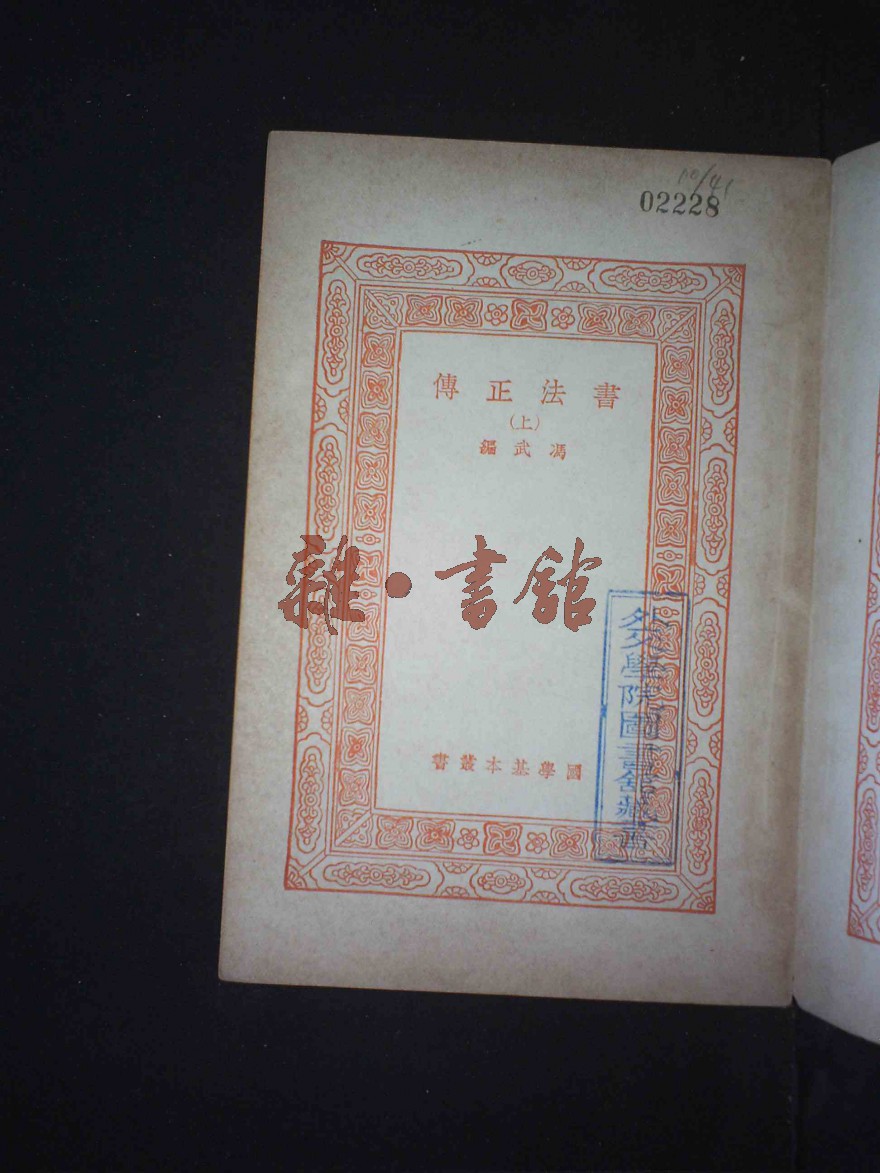 02228
書法正傳
(上)
馮武編
雜·書館
外交學院圖書館藏書
國學基本叢書